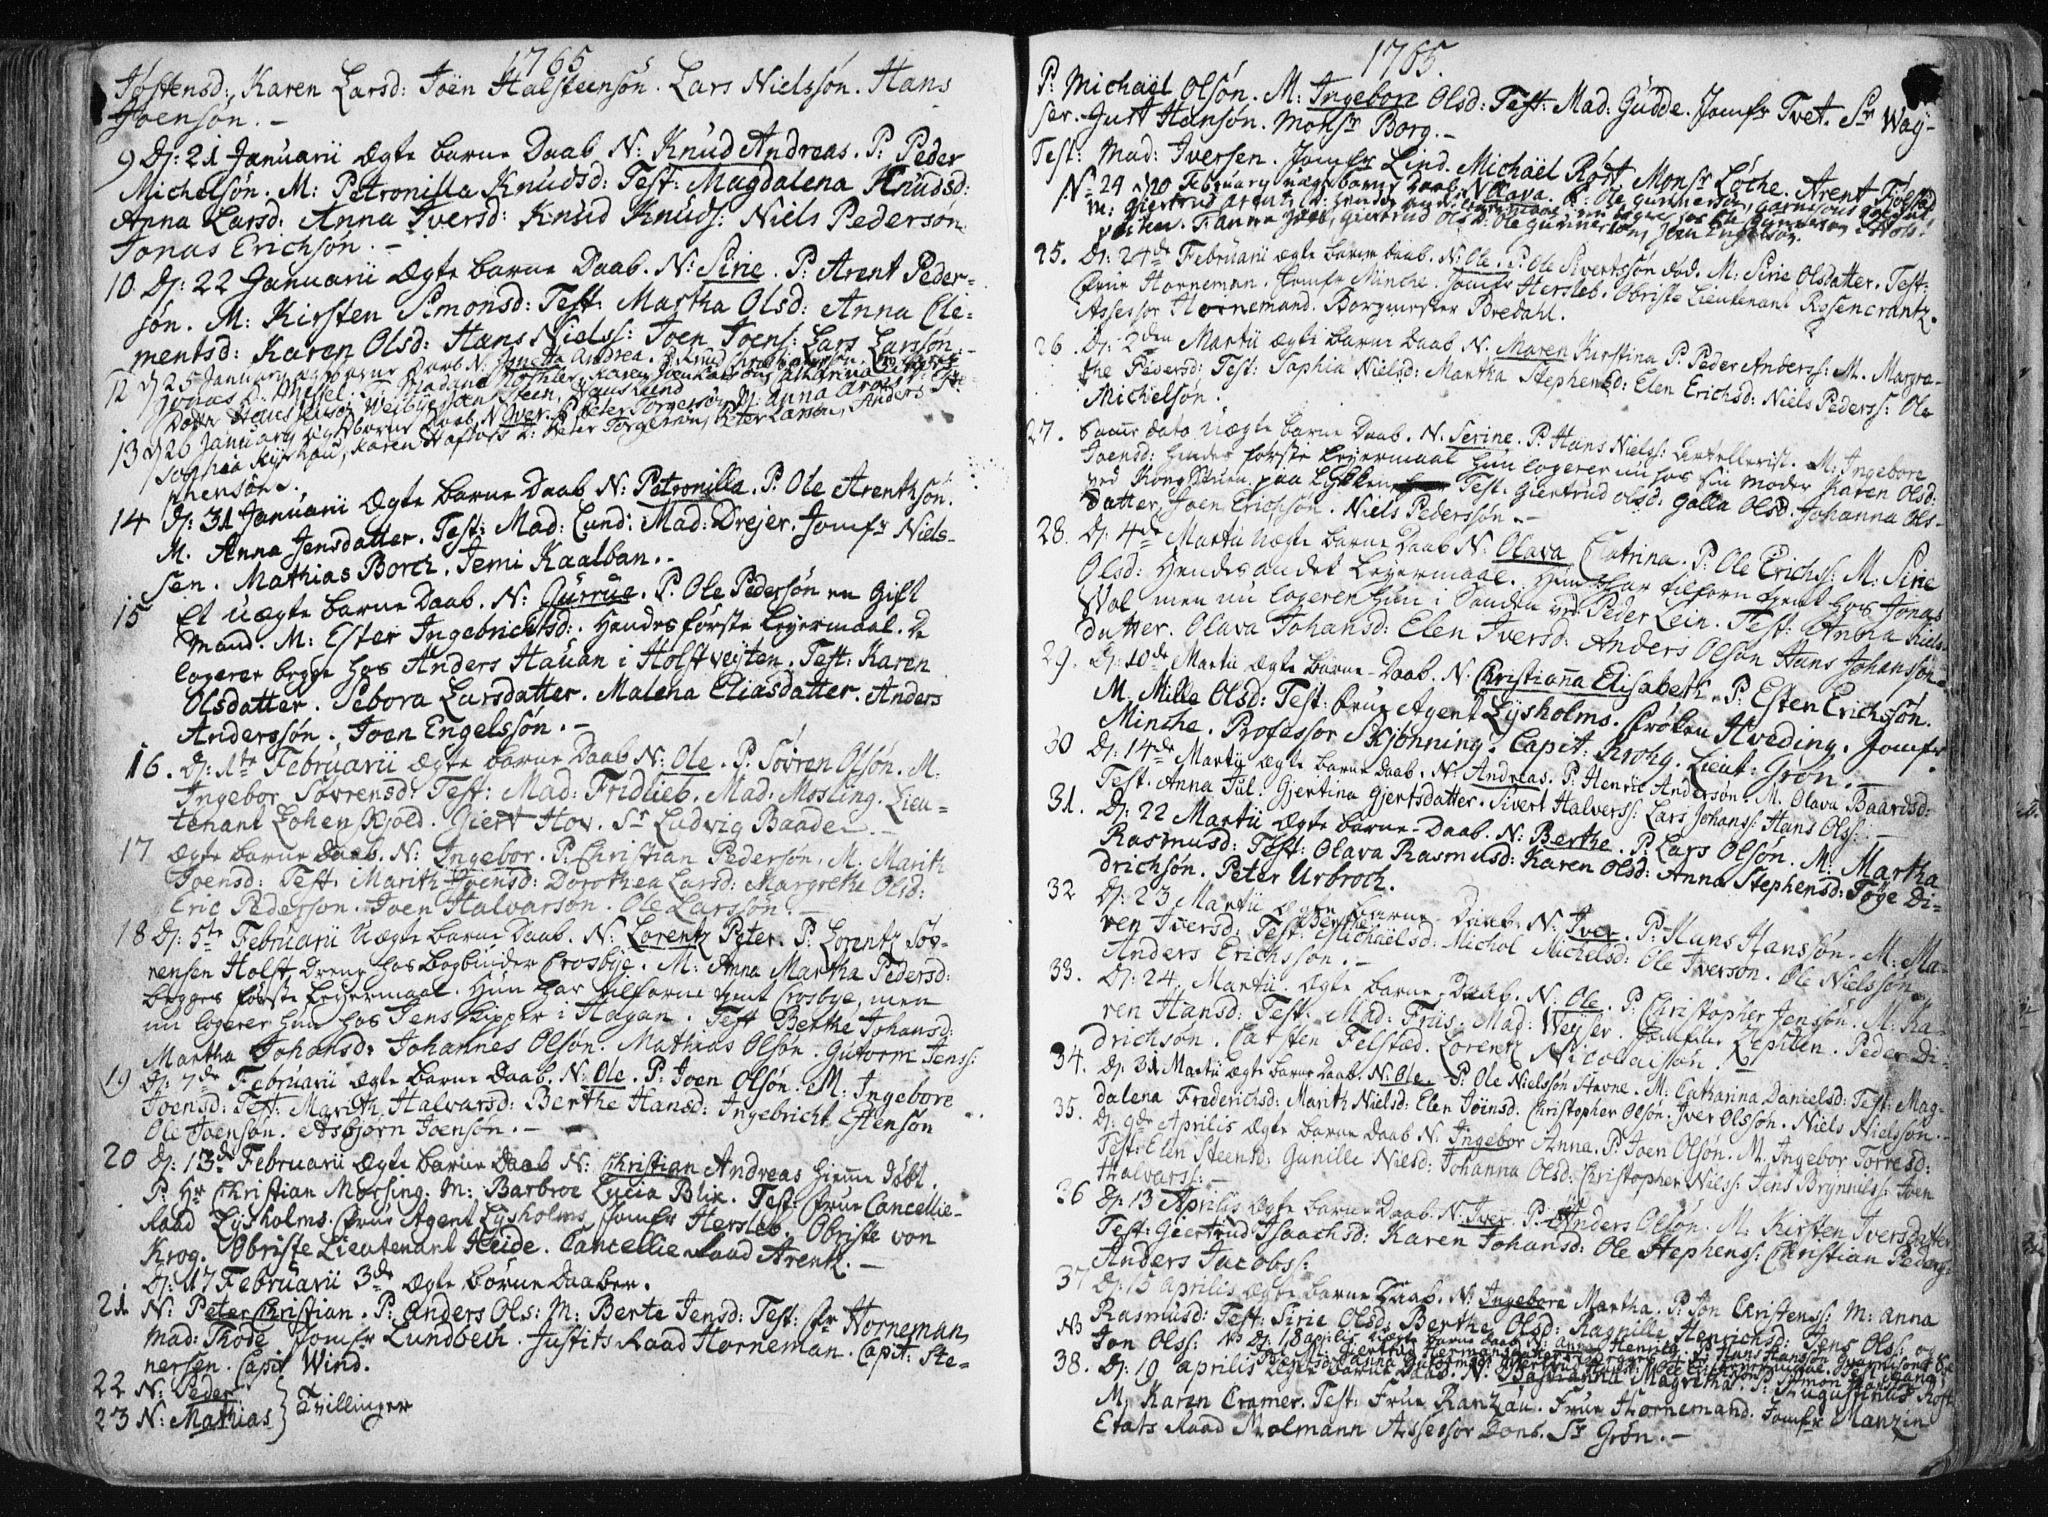 1765
Jostensd: Karen Larsd: Joen Halsteensön. Lars Nielssön. Hans
Joensön. -
9 Dj: 21 Januarii Ægte barne Daab N: Knud Andreas. P: Peder
Michelsön. M: Petronilla Knudsd: Test: Magdalena Knudsd:
Anna Larsd: Anna Iversd: Knud Knuds: Niels Pedersön
Jonas Erichsön. -
10 Dj: 22 Januarii Ægte barne Daab. N: Sirie. P: Arent Peder-
sön. M: Kirsten Simonsd: Test: Martha Olsd: Anna Cle-
mentsd: Karen Olsd: Hans Niels: Joen Joens: Lars Larssön. -
12 Dj 25 January ægte barne Daab N: Andrea. P: Knud
13 Dj 26 January barne Daab N: Iver. P: Peter Torgersön M: Anna
Sophia Peter Torgersön, Peter Larsön, Anders
phensön.
14 Dj: 31 Januarii Ægte barne Daab N: Petronilla. P: Ole Arentzsön.
M. Anna Jensdatter. Test: Mad: Lund: Mad: Drejer. Jomfr Niels-
sen. Mathias Borch. Jemi Kaalban. -
15 Et Uægte barne Daab. N: Gurrue. P. Ole Pedersön en Gift
Mand. M: Ester Ingebrichtsd: Hendes förste Leyermaal. De
logerer begge hos Anders Hauan i Holstveyten. Test: Karen
Olsdatter. Sebora Larsdatter. Malena Eliasdatter. Anders
Anderssön. Joen Engelssön. -
16. Dj: 1te Februarii Ægte barne Daab N: Ole. P. Sövren Olsön. M.
Ingebor Sövrensd: Test: Mad: Fridlieb. Mad: Mosling. Lieu-
tenant Lohenskjold. Giert Hov. Sr Ludvig Baade. -
17 Ægte barne Daab. N: Ingebor. P: Christian Pedersön. M. Marith
Joensd: Test: Marith Joensd: Dorothea Larsd: Margrethe Olsd:
Eric Pederson. Joen Halvarson. Ole Larssön. -
18 Dj: 5te Februarii Uægte barne Daab. N: Lorentz Peter. P: Lorentz Söv-
rensen Holst Dreng hos Bogbinder Crosbye. M: Anna Martha Pedersd:
begges förste Leyermaal. Hun har tilforne tient Crosbye, men
nu logerer hun hos Jens Skipper i Hagan. Test Berthe Johansd:
Martha Johansd: Johannes Olsön. Mathias Olsön. Gutorm Jens:
19 Dj: 7de Februarii Ægte barne Daab. N: Ole. P: Joen Olsön. M: Ingebore
Joensd: Test: Marith Halvarsd: Berthe Hansd: Ingebricht Estensön
Ole Joensön. Asbjorn Joensön. -
20 Dj: 13de Februarii Ægte barne Daab N: Christian Andreas hiemme döbt.
P. Hr Christian Mörsing. M: Barbroe Lucia Blix. Test: Frue Cancellie-
Raad Lysholms. Frue Agent Lysholms, Jomfr Hersleb. Obriste von
Krog. Obriste Lieutenant Heide. Cancellie Raad Arentz. -
Dj: 17 Februarii 3de Ægte börne Daaber.
21 N: Peter Christian. P: Anders Ols: M: Berte Jensd: Test: Fr Horneman,
Mad: Thode Jomfr Lundbech. Justits Raad Horneman. Capit: Ste-
nersen. Capit Wind.
22 N: Peder
23 N: Mathias } Tvillinger
1765.
P: Michaël Olsön. M: Ingebore Olsd: Test: Mad: Gudde. Jomfr Tvet. Sr Way-
ser. Jurt Hansön. Monsr Borg. -
Test: Mad: Iversen. Jomfr Lind. Michaël Röst Monsr Löche. Arent Fiösta
N: 24 D 20 February uægte barne daab. N: Olava. P: Ole Gunnersön
M: Giertrud Arent
25. Dj: 24de Februarii Ægte barne Daab. N: Ole. P: Ole Sivertssön död. M: Sirie Olsdatter. Test:
Frue Horneman. Jomfr Minche. Jomfr Hersleb. Obriste Lieutenant Rosencrantz.
Assessor Hornemand. Borgmester Bredahl.
26. Dj: 2den Martii Ægte barne Daab N: Maren Kirstina P: Peder Anders: M. Margre-
the Iversd: Test: Sophia Nielsd: Martha Stephensd: Elen Erichsd: Niels Peders: Ole
Michelsön.
27. Samme dato Uægte barne Daab. N: Serine. P. Hans Niels: Artellerist. M: Ingebore
Joensd: hendes förste Leyermaal hun logerer nu hos sin Moder Karen Olsd:
ved Kongstuen paa Lykken Test: Giertrud Olsd: Golla Olsd: Johanna Ols-
datter, Joen Erichsön. Niels Pederssön. -
28. Dj: 4de Martii Uægte barne Daab N: Olava Catrina. P: Ole Erichs: M: Sirie
Olsd: Hendes andet Leyermaal. Hun har tilforn tient hos Jonas
Wal men nu logerer hun i Sanden ved Peder Lein. Test: Anna Niels-
datter. Olava Johansd: Elen Iversd: Anders Olsön Hans Johanssön.
29. Dj: 10de Martii Ægte barne Daab. N: Christianna Elisabeth. P: Esten Erichssön.
M. Mille Olsd: Test: Frue Agent Lysholms. Fröken Hveding. Jomfr
Minche. Professor Skjönning. Capit: Krohg. Lieut: Grön. -
30 Dj: 14de Martii Ægte barne Daab. N: Andreas. P: Henric Andersön. M. Olava Baardsd:
Test. Anna Jul. Gjertina Gjertsdatter. Sivert Halvers: Lars Johans: Hans Ols: -
31. Dj: 22 Martii Ægte barne Daab. N: Berthe. P: Lars Olsön. M: Martha
Rasmusd: Test: Olava Rasmusd: Karen Olsd: Anna Stephensd: Töge Di-
drichsön. Peter Urbroch.
32 Dj: 23 Martii Ægte barne Daab. N: Iver. P: Hans Hanssön. M: Ma-
ren Iversd: Test: Berthe Michaëlsd: Michol Michelsd: Ole Iverson. Ole Nielssön
Anders Erichsson. -
33. Dj: 24. Martii Ægte barne Daab. N: Ole. P: Christopher Jenssön. M: Ka-
ren Hansd: Test: Mad: Friis. Mad: Weyser. Jomfrue Leplien. Peder Di-
drichsön. Carsten Felstæd. Lorentz Nicolaisön.
34. Dj: 31 Martii Ægte barne Daab. N: Ole. P: Ole Nielssön Stevne. M: Catharina Danielsd: Test: Mag-
dalena Frederichsd: Marith Nielsd: Elen Jöensd: Christopher Olsön. Iver Olssön. Niels Nielsson.
35. Dj: 9de Aprilis Ægte barne Daab N: Ingebor Anna. P: Joen Olsön. M. Ingebor Torresd:
Test: Elen Steensd: Gunille Nielsd: Johanna Olsd: Christopher Niels: Jens Brynnils: Joen
Halvars: -
36 Dj: 13 Aprilis Ægte barne Daab. N: Iver. P: Anders Olsön. M. Kirsten Iversdatter.
Test: Giertrud Isaachsd: Karen Johansd: Ole Stephens: Christian Peders:
Anders Jacobs:
37 Dj: 15 Aprilis Ægte barne Daab. N: Ingebore Martha. P: Jon Christens: M: Anna
Rasmusd: Test: Sirie Olsd: Berthe Olsd: Ragnille Henrichsd: Jens Ols: og
NB
Jon Ols: NB Dj: 18 aprilis Uægte barne daab N: Anna Henrica. P: Hans Hanssön
38. Dj: 19 Aprilis Ægte barne Daab. N: Bastianna Magretha. P: Augustinus Röst
M: Karen Cramer. Test: Frue Rantzau. Frue Hornemand. Jomfr Manzin
Etats Raad Molmann Assessor Dons. Sr Grön. -